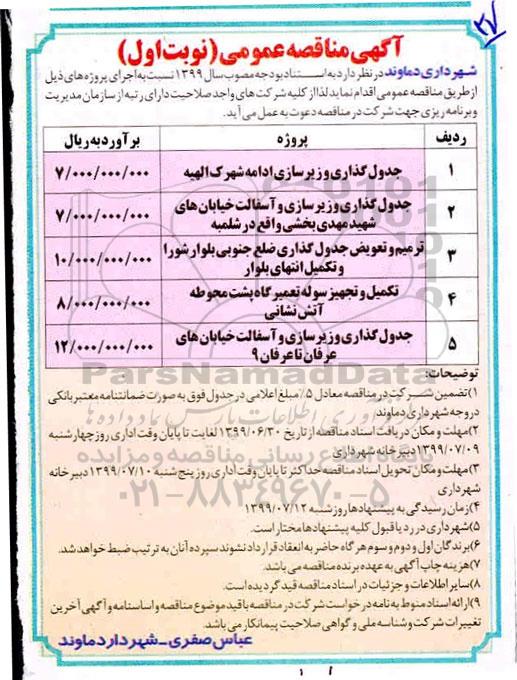 ۳۷
آگهی مناقصه عمومی (نوبت اول)
شهرداری دماوند در نظر دارد به استناد بودجه مصوب سال ۱۳۹۹ نسبت به اجرای پروژه های ذیل
از طریق مناقصه عمومی اقدام نماید لذا از کلیه شرکت های واجد صلاحیت دارای رتبه از سازمان مدیریت
و برنامه ریزی جهت شرکت در مناقصه دعوت به عمل می آید.
ردیف پروژه برآورد به ریال
۱ جدول گذاری و زیرسازی ادامه شهرک الهیه ۷/۰۰۰/۰۰۰/۰۰۰
۲ جدول گذاری و زیرسازی و آسفالت خیابان های شهید مهدی بخشی واقع در شلمبه ۷/۰۰۰/۰۰۰/۰۰۰
۳ ترمیم و تعویض جدول گذاری ضلع جنوبی بلوار شورا و تکمیل انتهای بلوار ۱۰/۰۰۰/۰۰۰/۰۰۰
۴ تکمیل و تجهیز سوله تعمیرگاه پشت محوطه آتش نشانی ۸/۰۰۰/۰۰۰/۰۰۰
۵ جدول گذاری و زیرسازی و آسفالت خیابان های عرفان تا عرفان ۹ ۱۲/۰۰۰/۰۰۰/۰۰۰
توضیحات:
۱) تضمین شرکت در مناقصه معادل ۵٪ مبلغ اعلامی در جدول فوق به صورت ضمانتنامه معتبر بانکی
در وجه شهرداری دماوند
۲) مهلت و مکان دریافت اسناد مناقصه از تاریخ ۱۳۹۹/۰۶/۳۰ لغایت تا پایان وقت اداری روز چهارشنبه
۱۳۹۹/۰۷/۰۹ دبیرخانه شهرداری
۳) مهلت و مکان تحویل اسناد مناقصه حداکثر تا پایان وقت اداری روز پنج شنبه ۱۳۹۹/۰۷/۱۰ دبیرخانه
شهرداری
۴) زمان رسیدگی به پیشنهادها روز شنبه ۱۳۹۹/۰۷/۱۲
۵) شهرداری در رد یا قبول کلیه پیشنهادها مختار است.
۶) برندگان اول و دوم و سوم هرگاه حاضر به انعقاد قرارداد نشوند سپرده آنان به ترتیب ضبط خواهد شد.
۷) هزینه چاپ آگهی به عهده برنده مناقصه می باشد.
۸) سایر اطلاعات و جزئیات در اسناد مناقصه قید گردیده است.
۹) ارائه اسناد منوط به نامه درخواست شرکت در مناقصه با قید موضوع مناقصه و اساسنامه و آگهی آخرین
تغییرات شرکت و شناسه ملی و گواهی صلاحیت پیمانکار می باشد.
عباس صفری - شهردار دماوند
ParsNamadData
۰۲۱-۸۸۳۴۹۶۷۰-۵